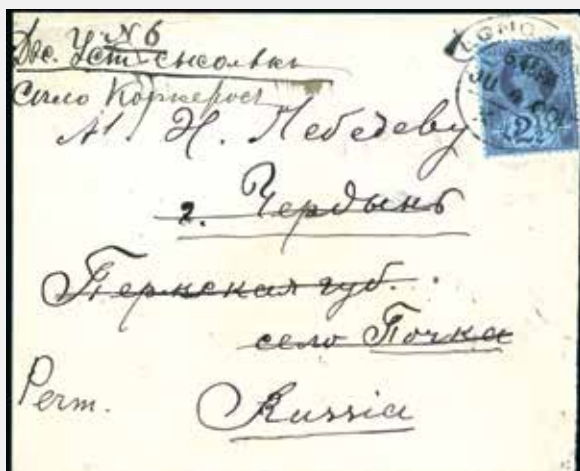 N 6
Дос. Усть Сысольскъ
Село Корткеросъ
Н. Лебедеву
г. Чердынь
Пермская губ.
село Почка
Perm.
Russia
LONDON
2½